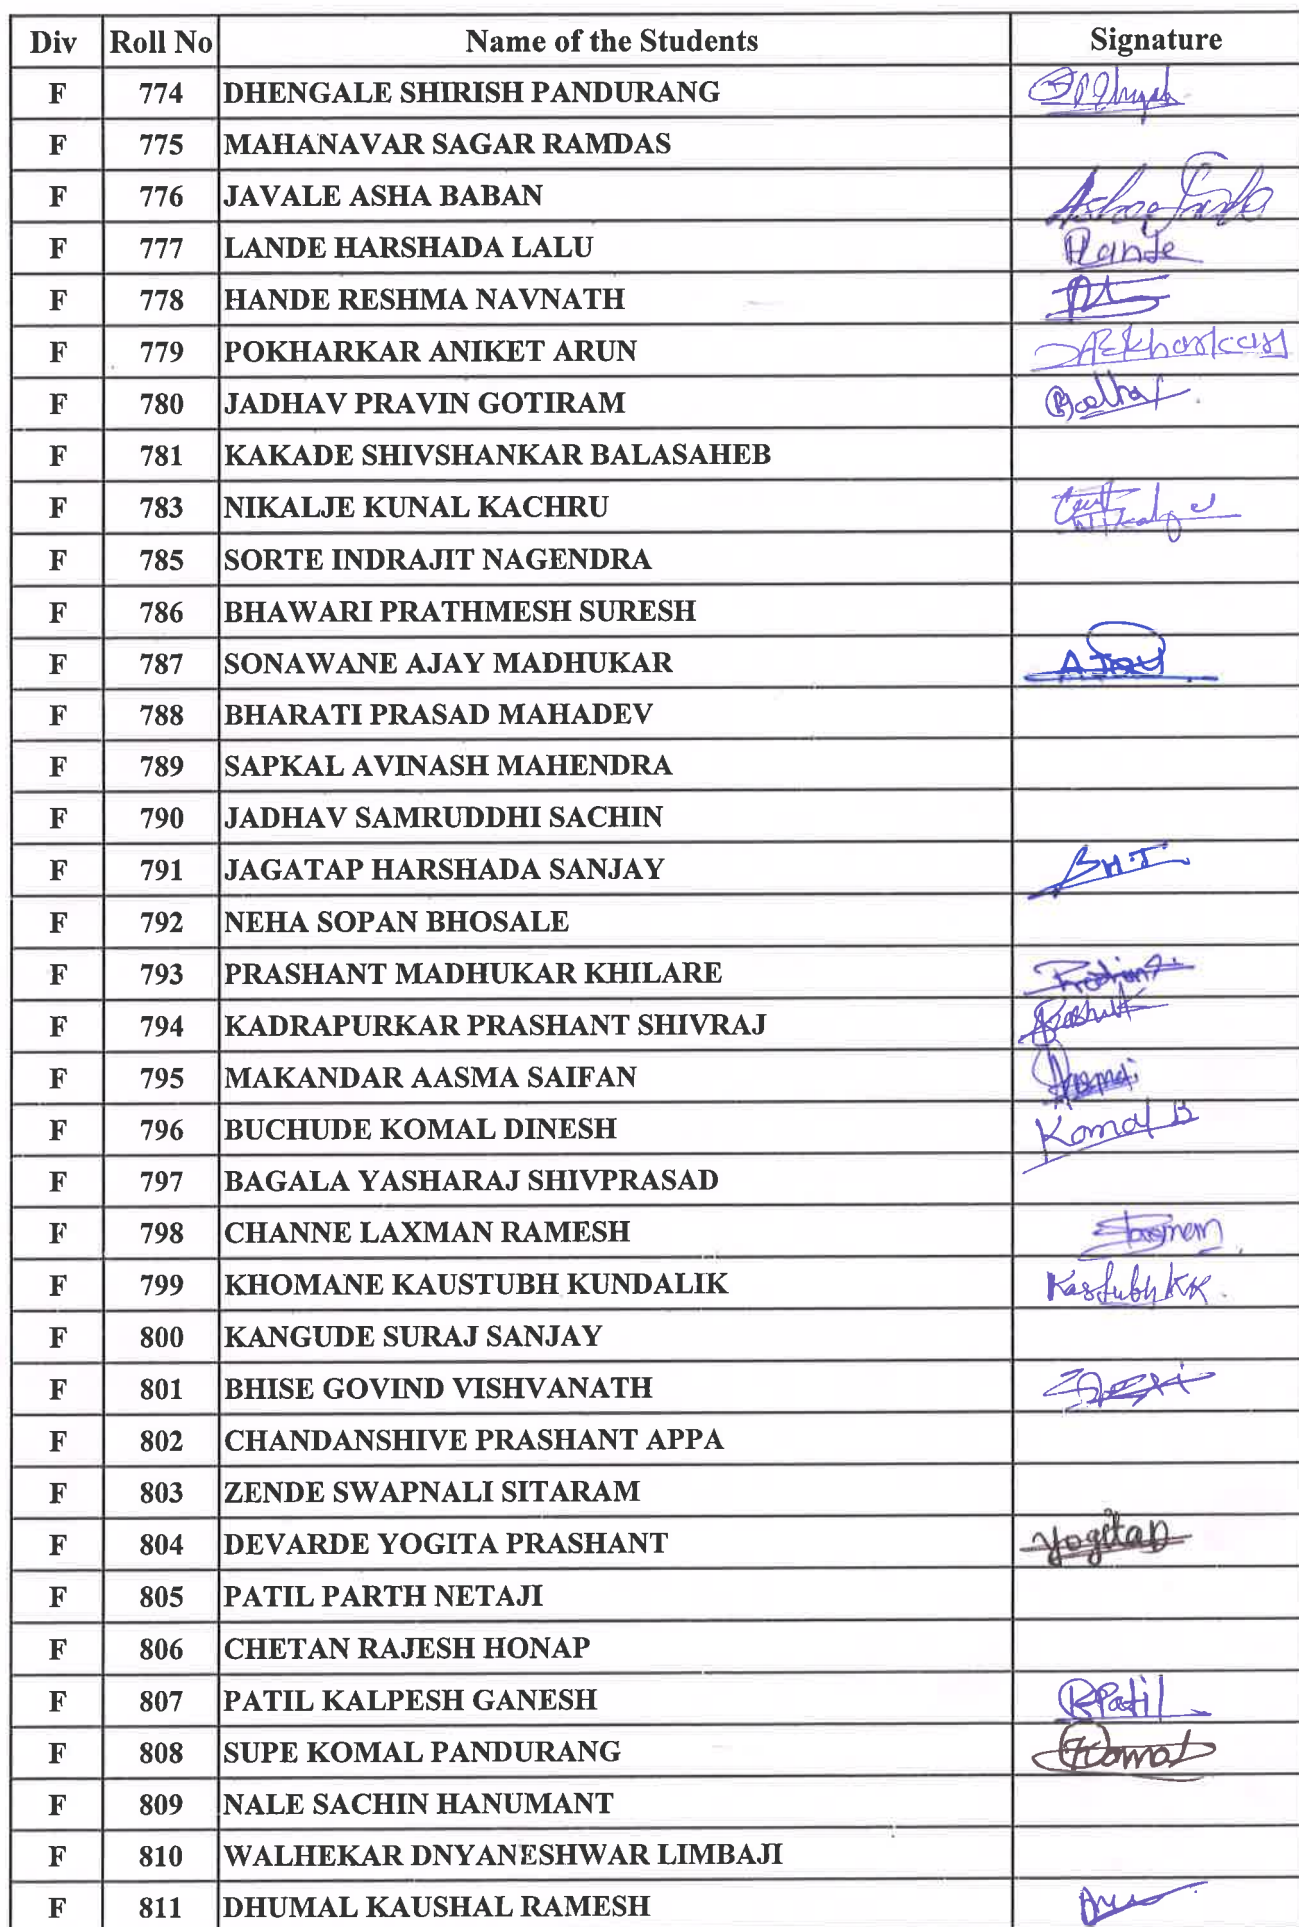 Div Roll No Name of the Students Signature
F 774 DHENGALE SHIRISH PANDURANG
F 775 MAHANAVAR SAGAR RAMDAS
F 776 JAVALE ASHA BABAN
F 777 LANDE HARSHADA LALU
F 778 HANDE RESHMA NAVNATH
F 779 POKHARKAR ANIKET ARUN
F 780 JADHAV PRAVIN GOTIRAM
F 781 KAKADE SHIVSHANKAR BALASAHEB
F 783 NIKALJE KUNAL KACHRU
F 785 SORTE INDRAJIT NAGENDRA
F 786 BHAWARI PRATHMESH SURESH
F 787 SONAWANE AJAY MADHUKAR AJAY
F 788 BHARATI PRASAD MAHADEV
F 789 SAPKAL AVINASH MAHENDRA
F 790 JADHAV SAMRUDDHI SACHIN
F 791 JAGATAP HARSHADA SANJAY
F 792 NEHA SOPAN BHOSALE
F 793 PRASHANT MADHUKAR KHILARE
F 794 KADRAPURKAR PRASHANT SHIVRAJ
F 795 MAKANDAR AASMA SAIFAN
F 796 BUCHUDE KOMAL DINESH Komal B
F 797 BAGALA YASHARAJ SHIVPRASAD
F 798 CHANNE LAXMAN RAMESH
F 799 KHOMANE KAUSTUBH KUNDALIK Kastubh KK.
F 800 KANGUDE SURAJ SANJAY
F 801 BHISE GOVIND VISHVANATH
F 802 CHANDANSHIVE PRASHANT APPA
F 803 ZENDE SWAPNALI SITARAM
F 804 DEVARDE YOGITA PRASHANT YogitaD
F 805 PATIL PARTH NETAJI
F 806 CHETAN RAJESH HONAP
F 807 PATIL KALPESH GANESH KPatil
F 808 SUPE KOMAL PANDURANG Komal
F 809 NALE SACHIN HANUMANT
F 810 WALHEKAR DNYANESHWAR LIMBAJI
F 811 DHUMAL KAUSHAL RAMESH